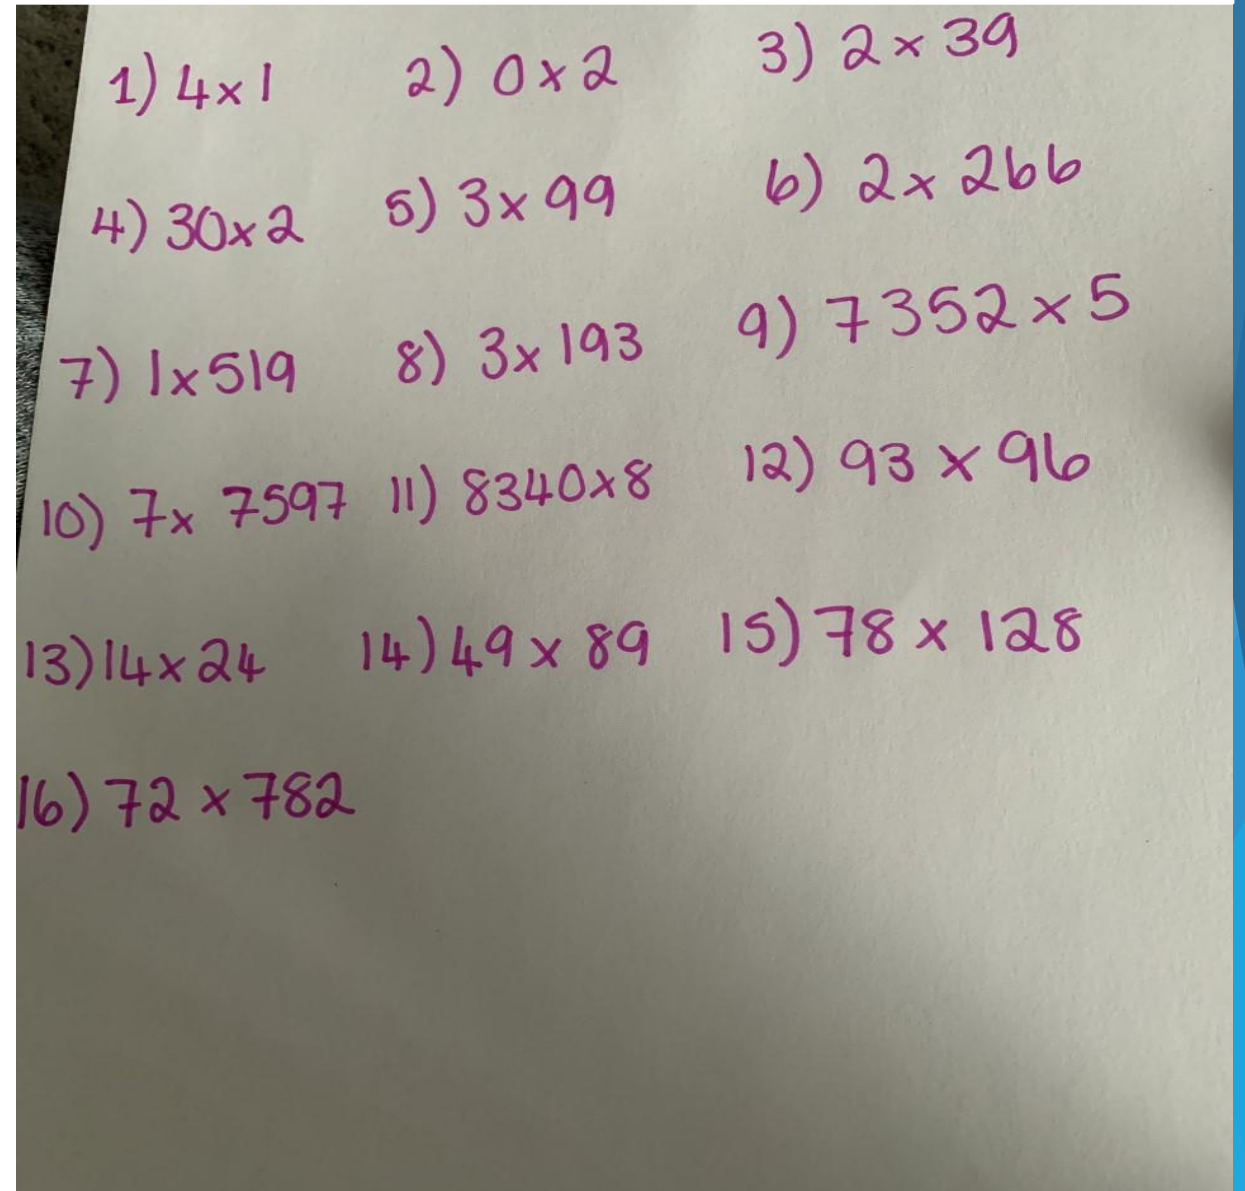 1) 4 x 1 2) 0 x 2 3) 2 x 39
4) 30 x 2 5) 3 x 99 6) 2 x 266
7) 1 x 519 8) 3 x 193 9) 7352 x 5
10) 7 x 7597 11) 8340 x 8 12) 93 x 96
13) 14 x 24 14) 49 x 89 15) 78 x 128
16) 72 x 782